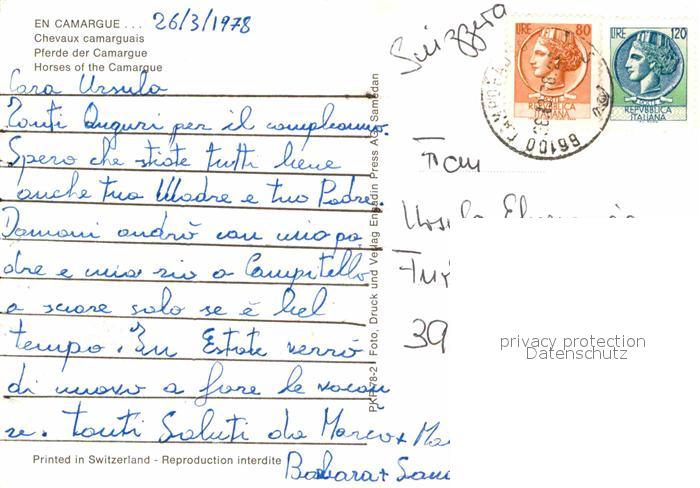 EN CAMARGUE . . .
26/3/1978
Chevaux camarguais
Pferde der Camargue
Horses of the Camargue
Cara Ursula
Tanti Auguri per il compleanno.
Spero che stiate tutti bene
anche tua Madre e tuo Padre.
Domani andrò con mio pa
dre e mia zia a Campitello
a sciare solo se è bel
tempo. In Estate verrò
di nuovo a fare le vacan
ze. Tanti Saluti da Marco +
Babara +
Printed in Switzerland - Reproduction interdite
PKF 78-2 / Foto, Druck und Verlag Engadin Press AG, Samedan
Suizzera
LIRE 80
REPVBBLICA
ITALIANA
LIRE 120
REPVBBLICA
ITALIANA
66100
Frau
Ursula
39
privacy protection
Datenschutz